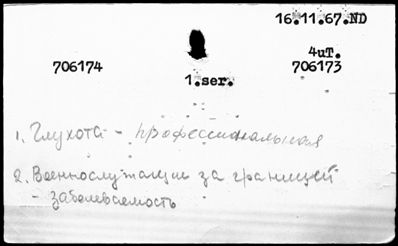 16.11.67.ND
4uT.
706174 706173
1.ser.
1. Глухота - профессиональная
2. Военнослужащие за границей
- заболеваемость